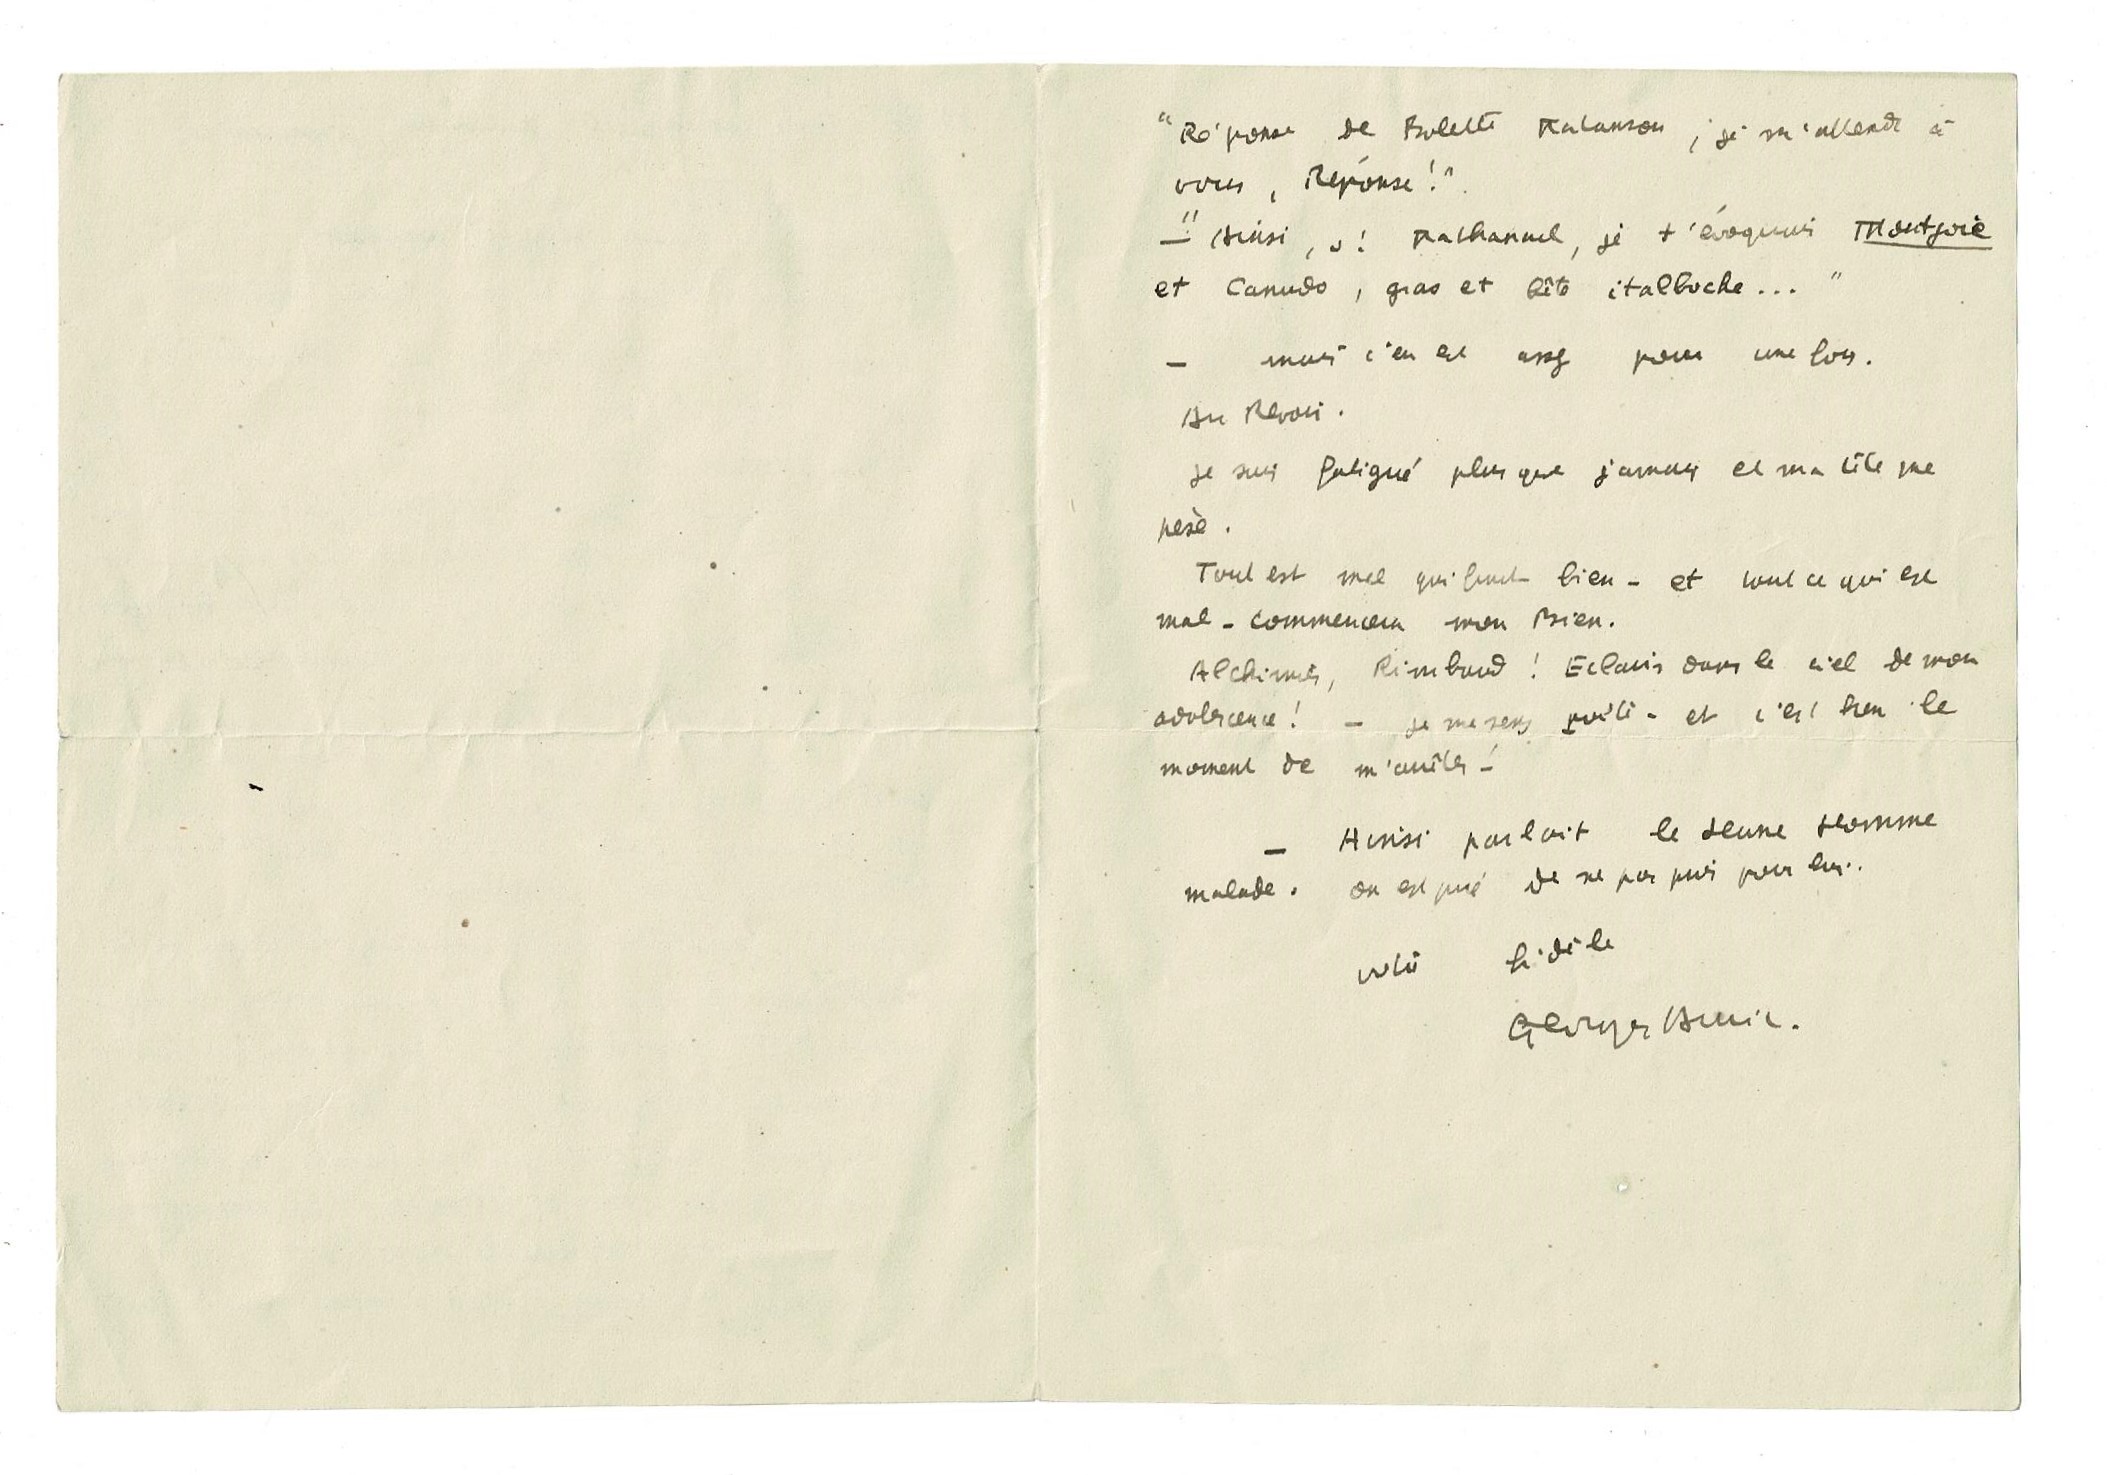 "Réponse de Bolette Natanson, je m'attends à
vous, Réponse!".
— "Ainsi, ô! Nathanael, je t'évoquais Montjoie
et Canudo, gras et bête italboche... "
— mais c'en est assez pour une fois.
Au Revoir.
je suis fatigué plus que jamais et ma tête me
pèse.
Tout est mal qui finit bien - et tout ce qui est
mal - commencera mon Bien.
Alchimies, Rimbaud! Eclairs dans le ciel de mon
adolescence! — je me sens poète - et c'est bien le
moment de m'arrêter!
— Ainsi parlait le Jeune Homme
malade. on est prié de ne pas prier pour lui.
votre fidèle
Georges Auric.